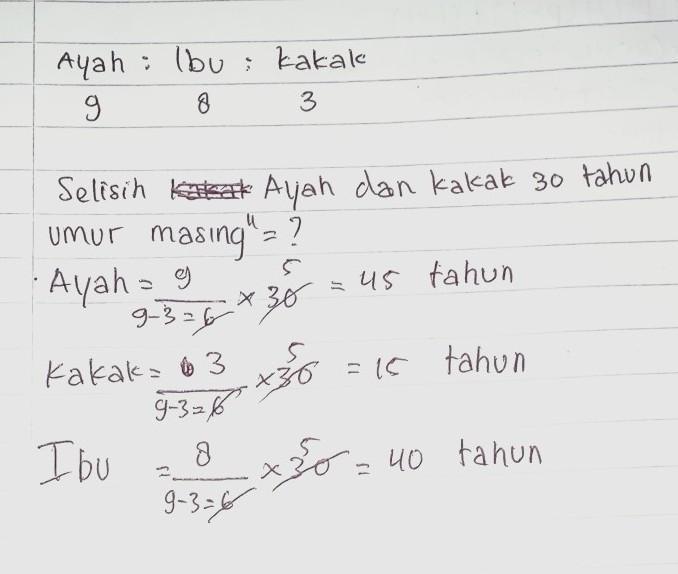 Ayah : Ibu : kakak
9 8 3
Selisih Ayah dan kakak 30 tahun
umur masing" = ?
. Ayah = 9/9-3=6 × 30 5 = 45 tahun
Kakak = 3/9-3=6 × 30 5 = 15 tahun
Ibu = 8/9-3=6 × 30 5 = 40 tahun